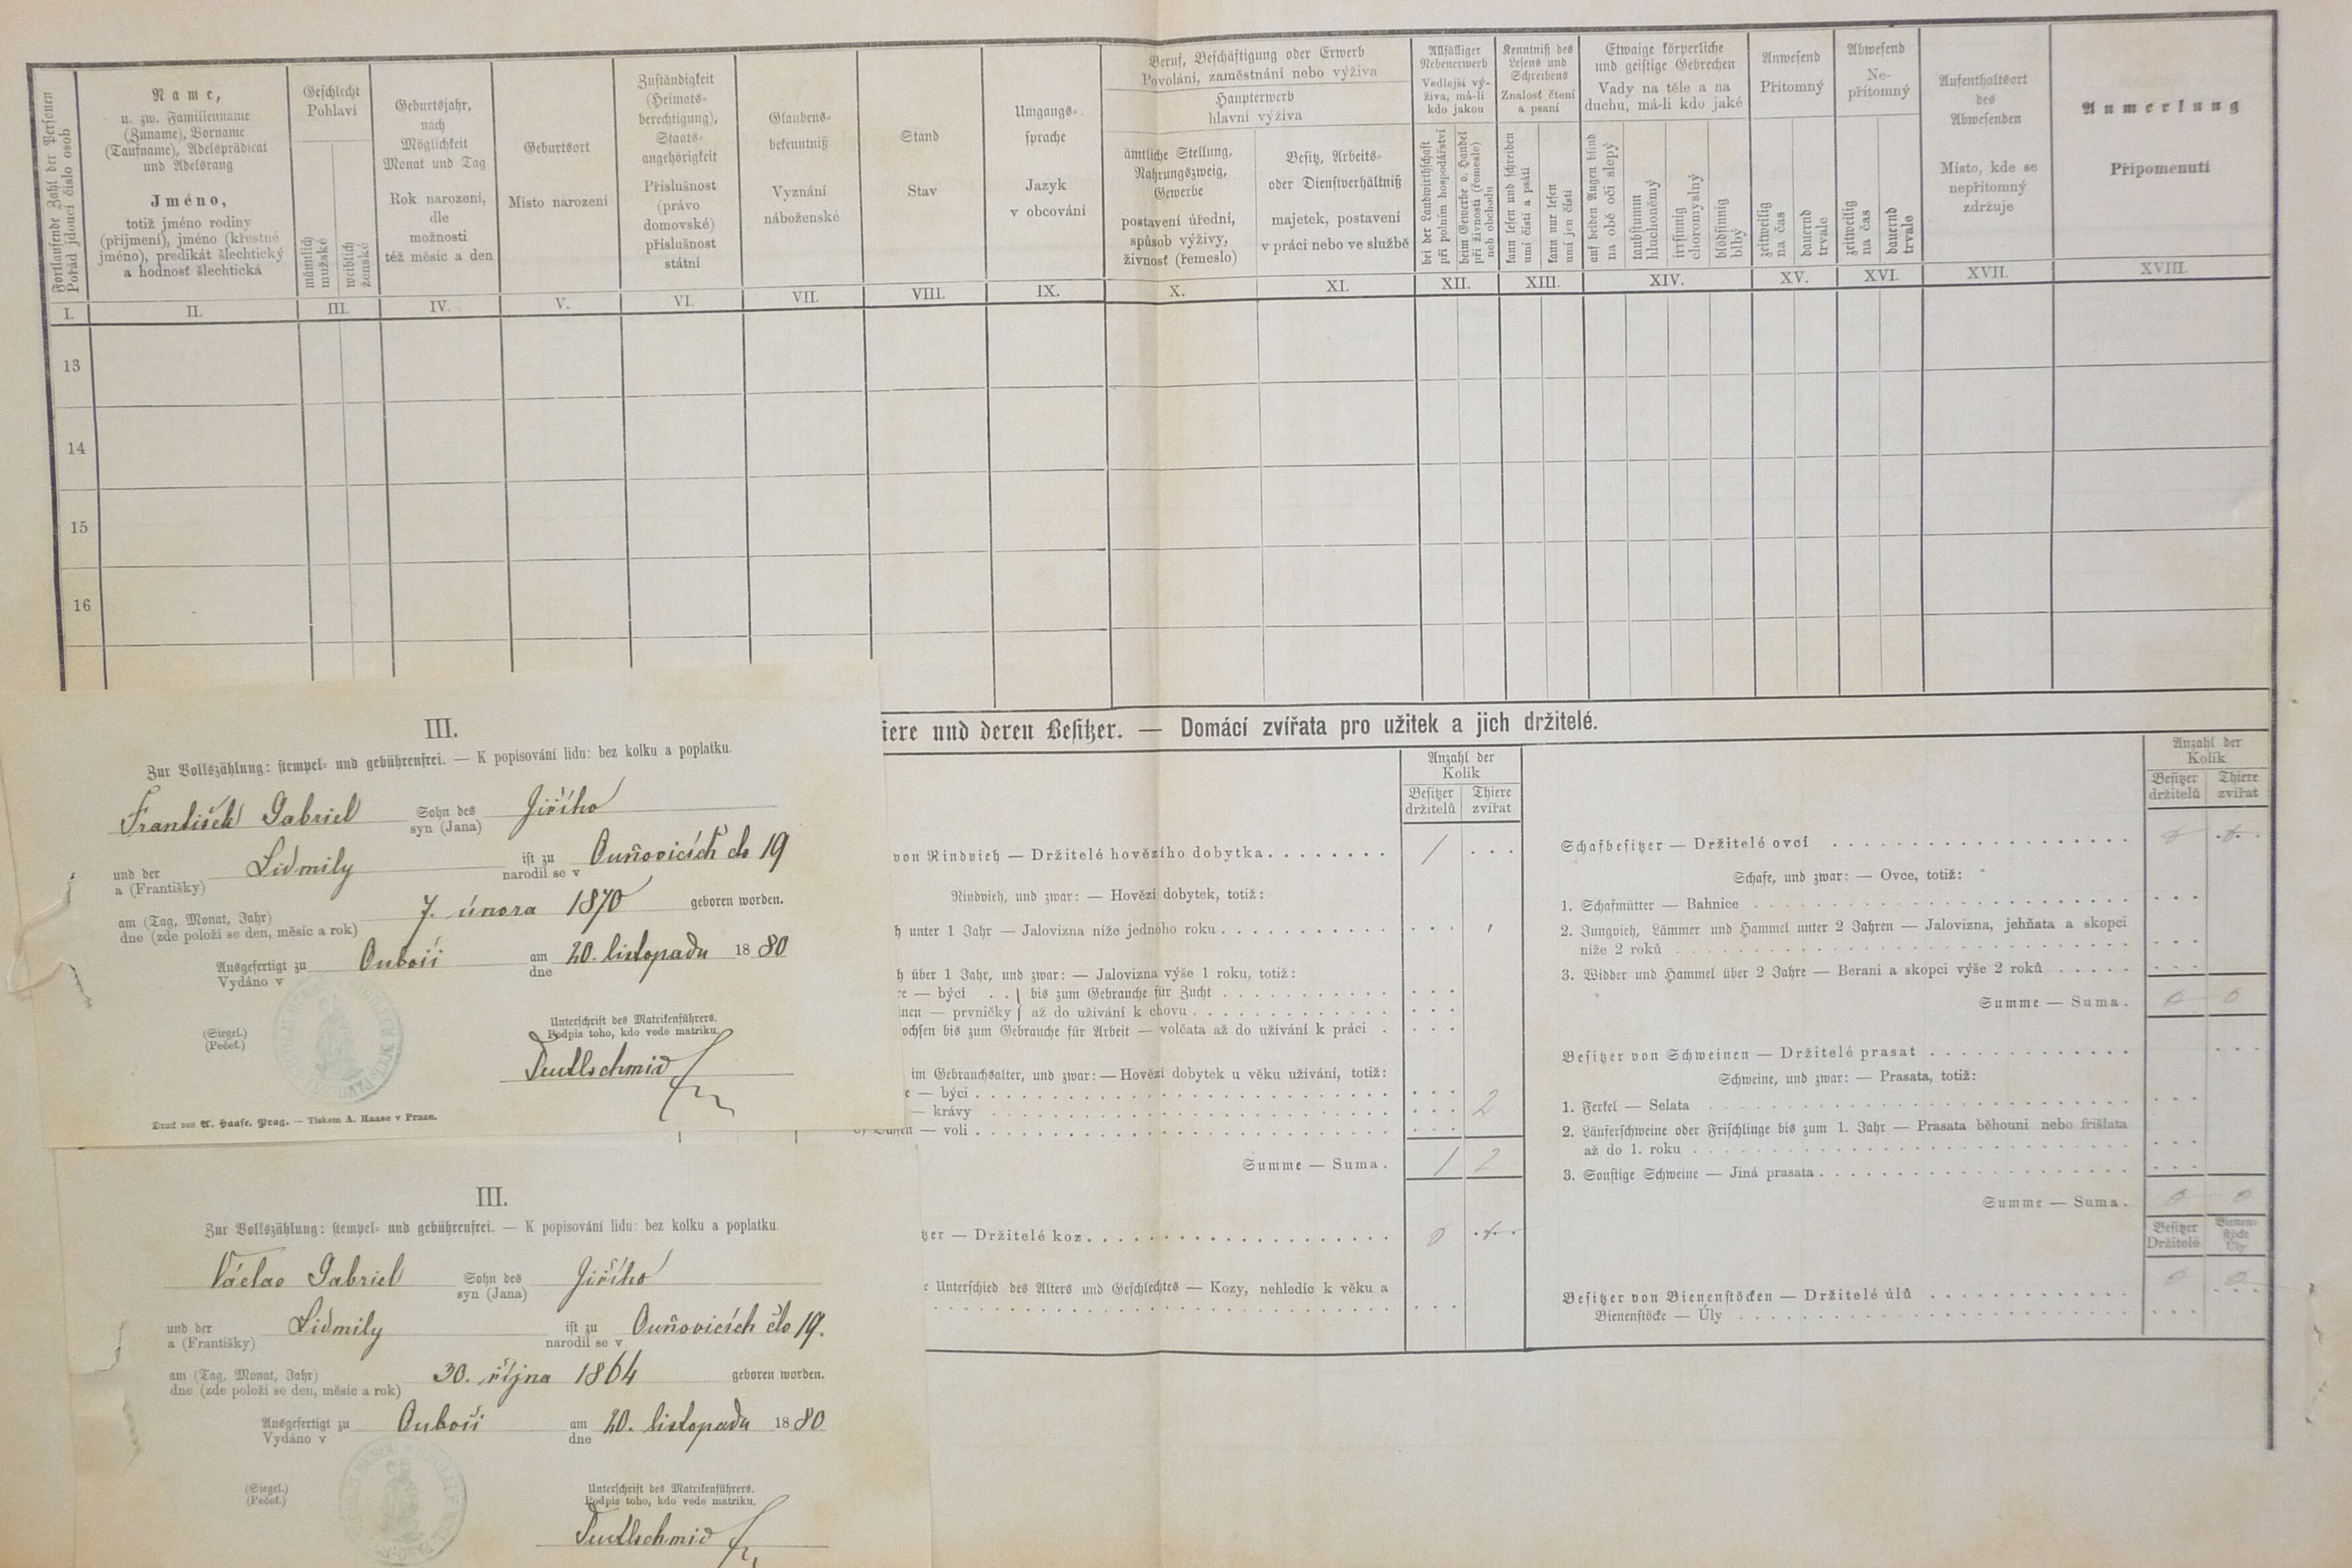 Fortlaufende Zahl der Personen
Pořád jdoucí číslo osob
Name,
u. zw. Familienname
(Zuname), Vorname
(Taufname), Adelsprädicat
und Adelsrang
Jméno,
totiž jméno rodiny
(příjmení), jméno (křestné
jméno), predikát šlechtický
a hodnosť šlechtická
Geschlecht
Pohlaví
männlich
mužské
weiblich
ženské
Geburtsjahr,
nach
Möglichkeit
Monat und Tag
Rok narození,
dle
možnosti
též měsíc a den
Geburtsort
Místo narození
Zuständigkeit
(Heimats-
berechtigung),
Staats-
angehörigkeit
Příslušnost
(právo
domovské)
příslušnost
státní
Glaubens-
bekenntniß
Vyznání
náboženské
Stand
Stav
Umgangs-
sprache
Jazyk
v obcování
Beruf, Beschäftigung oder Erwerb
Povolání, zaměstnání nebo výživa
Haupterwerb
hlavní výživa
ämtliche Stellung,
Nahrungszweig,
Gewerbe
postavení úřední,
spůsob výživy,
živnosť (řemeslo)
Besitz, Arbeits-
oder Dienstverhältniß
majetek, postavení
v práci nebo ve službě
Allfälliger
Nebenerwerb
Vedlejší vý-
živa, má-li
kdo jakou
bei der Landwirthschaft
při polním hospodářství
beim Gewerbe o. Handel
při živnosti (řemesle)
neb obchodu
Kenntniß des
Lesens und
Schreibens
Znalosť čtení
a psaní
kann lesen und schreiben
umí čísti a psáti
kann nur lesen
umí jen čísti
Etwaige körperliche
und geistige Gebrechen
Vady na těle a na
duchu, má-li kdo jaké
auf beiden Augen blind
na obě oči slepý
taubstumm
hluchoněmý
irrsinnig
choromyslný
blödsinnig
blbý
Anwesend
Přítomný
zeitweilig
na čas
dauernd
trvale
Abwesend
Ne-
přítomný
zeitweilig
na čas
dauernd
trvale
Aufenthaltsort
des
Abwesenden
Místo, kde se
nepřítomný
zdržuje
Anmerkung
Připomenutí
I. II. III. IV. V. VI. VII. VIII. IX. X. XI. XII. XIII. XIV. XV. XVI. XVII. XVIII.
13
14
15
16
iere und deren Besitzer. — Domácí zvířata pro užitek a jich držitelé.
Anzahl der
Kolik
Besitzer Thiere
držitelů zvířat
von Rindvieh — Držitelé hovězího dobytka 1
Rindvieh, und zwar: — Hovězí dobytek, totiž:
h unter 1 Jahr — Jalovizna níže jednoho roku
h über 1 Jahr, und zwar: — Jalovizna výše 1 roku, totiž:
re — býci } bis zum Gebrauche für Zucht
nen — prvničky } až do užívání k chovu
ochsen bis zum Gebrauche für Arbeit — volčata až do užívání k práci
im Gebrauchsalter, und zwar: — Hovězí dobytek u věku užívání, totiž:
e — býci
— krávy 2
— voli
Summe — Suma. 1 2
tzer — Držitelé koz 0
e Unterschied des Alters und Geschlechtes — Kozy, nehledíc k věku a
Anzahl der
Kolik
Besitzer Thiere
držitelů zvířat
Schafbesitzer — Držitelé ovcí
Schafe, und zwar: — Ovce, totiž:
1. Schafmütter — Bahnice
2. Jungvieh, Lämmer und Hammel unter 2 Jahren — Jalovizna, jehňata a skopci
níže 2 roků
3. Widder und Hammel über 2 Jahre — Berani a skopci výše 2 roků
Summe — Suma. 0 0
Besitzer von Schweinen — Držitelé prasat
Schweine, und zwar: — Prasata, totiž:
1. Ferkel — Selata
2. Läuferschweine oder Frischlinge bis zum 1. Jahr — Prasata běhouni nebo frišlata
až do 1. roku
3. Sonstige Schweine — Jiná prasata
Summe — Suma. 0 0
Besitzer Bienen-
stöcke
Držitelé Úly
0 0
Besitzer von Bienenstöcken — Držitelé úlů
Bienenstöcke — Úly
III.
Zur Volkszählung: stempel- und gebührenfrei. — K popisování lidu: bez kolku a poplatku.
František Gabriel Sohn des Jiřího
syn (Jana)
und der Lidmily ist zu Ouňovicích čío 19
a (Františky) narodil se v
am (Tag, Monat, Jahr) 7. února 1870 geboren worden.
dne (zde položí se den, měsíc a rok)
Ausgefertigt zu Ouboči am 20. listopadu 1880
Vydáno v dne
(Siegel.)
(Pečeť.)
Unterschrift des Matrikenführers.
Podpis toho, kdo vede matriku.
Druck von A. Haase, Prag. — Tiskem A. Haase v Praze.
III.
Zur Volkszählung: stempel- und gebührenfrei. — K popisování lidu: bez kolku a poplatku.
Václav Gabriel Sohn des Jiřího
syn (Jana)
und der Lidmily ist zu Ouňovicích čío 19.
a (Františky) narodil se v
am (Tag, Monat, Jahr) 30. října 1864 geboren worden.
dne (zde položí se den, měsíc a rok)
Ausgefertigt zu Ouboči am 20. listopadu 1880
Vydáno v dne
(Siegel.)
(Pečeť.)
Unterschrift des Matrikenführers.
Podpis toho, kdo vede matriku.